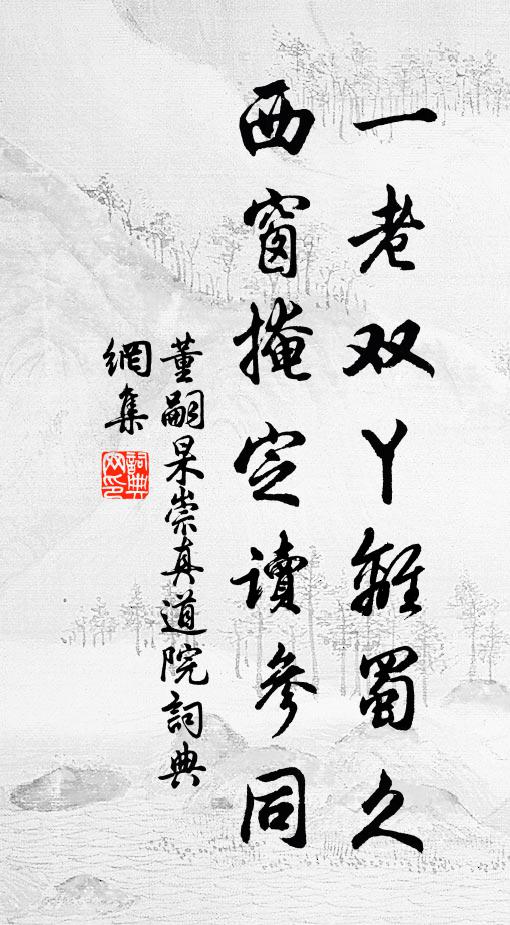 一老双丫離蜀久
西窗掩定讀參同
董嗣杲崇真道院詞典
網集
詞典網印